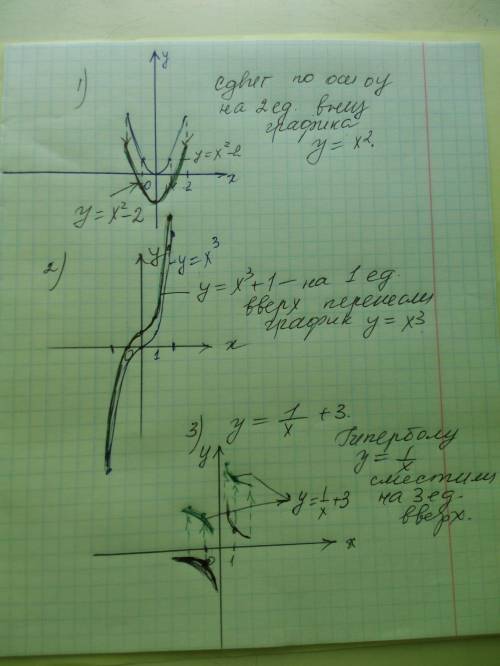 1)
y
сдвиг по оси оу
на 2 ед. вниз
графика
y = x².
y = x²-2
0
2
x
y = x²-2
2)
y
y = x³
y = x³+1 - на 1 ед.
вверх перенесли
график y = x³
0
1
x
3) y = 1/x + 3.
Гиперболу
y = 1/x
сместили
на 3 ед.
вверх.
y
y = 1/x + 3
0
1
x